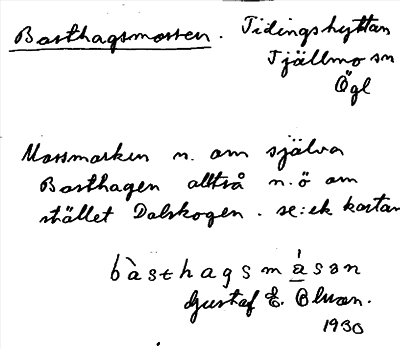 Basthagsmossen. Tidingshyttan
Tjällmo sn
Ögl
Mossmarken n. om själva
Basthagen alltså n.ö om
stället Dalskogen. se: ek kartan
bàsthagsmásan
Gustaf E.
1930